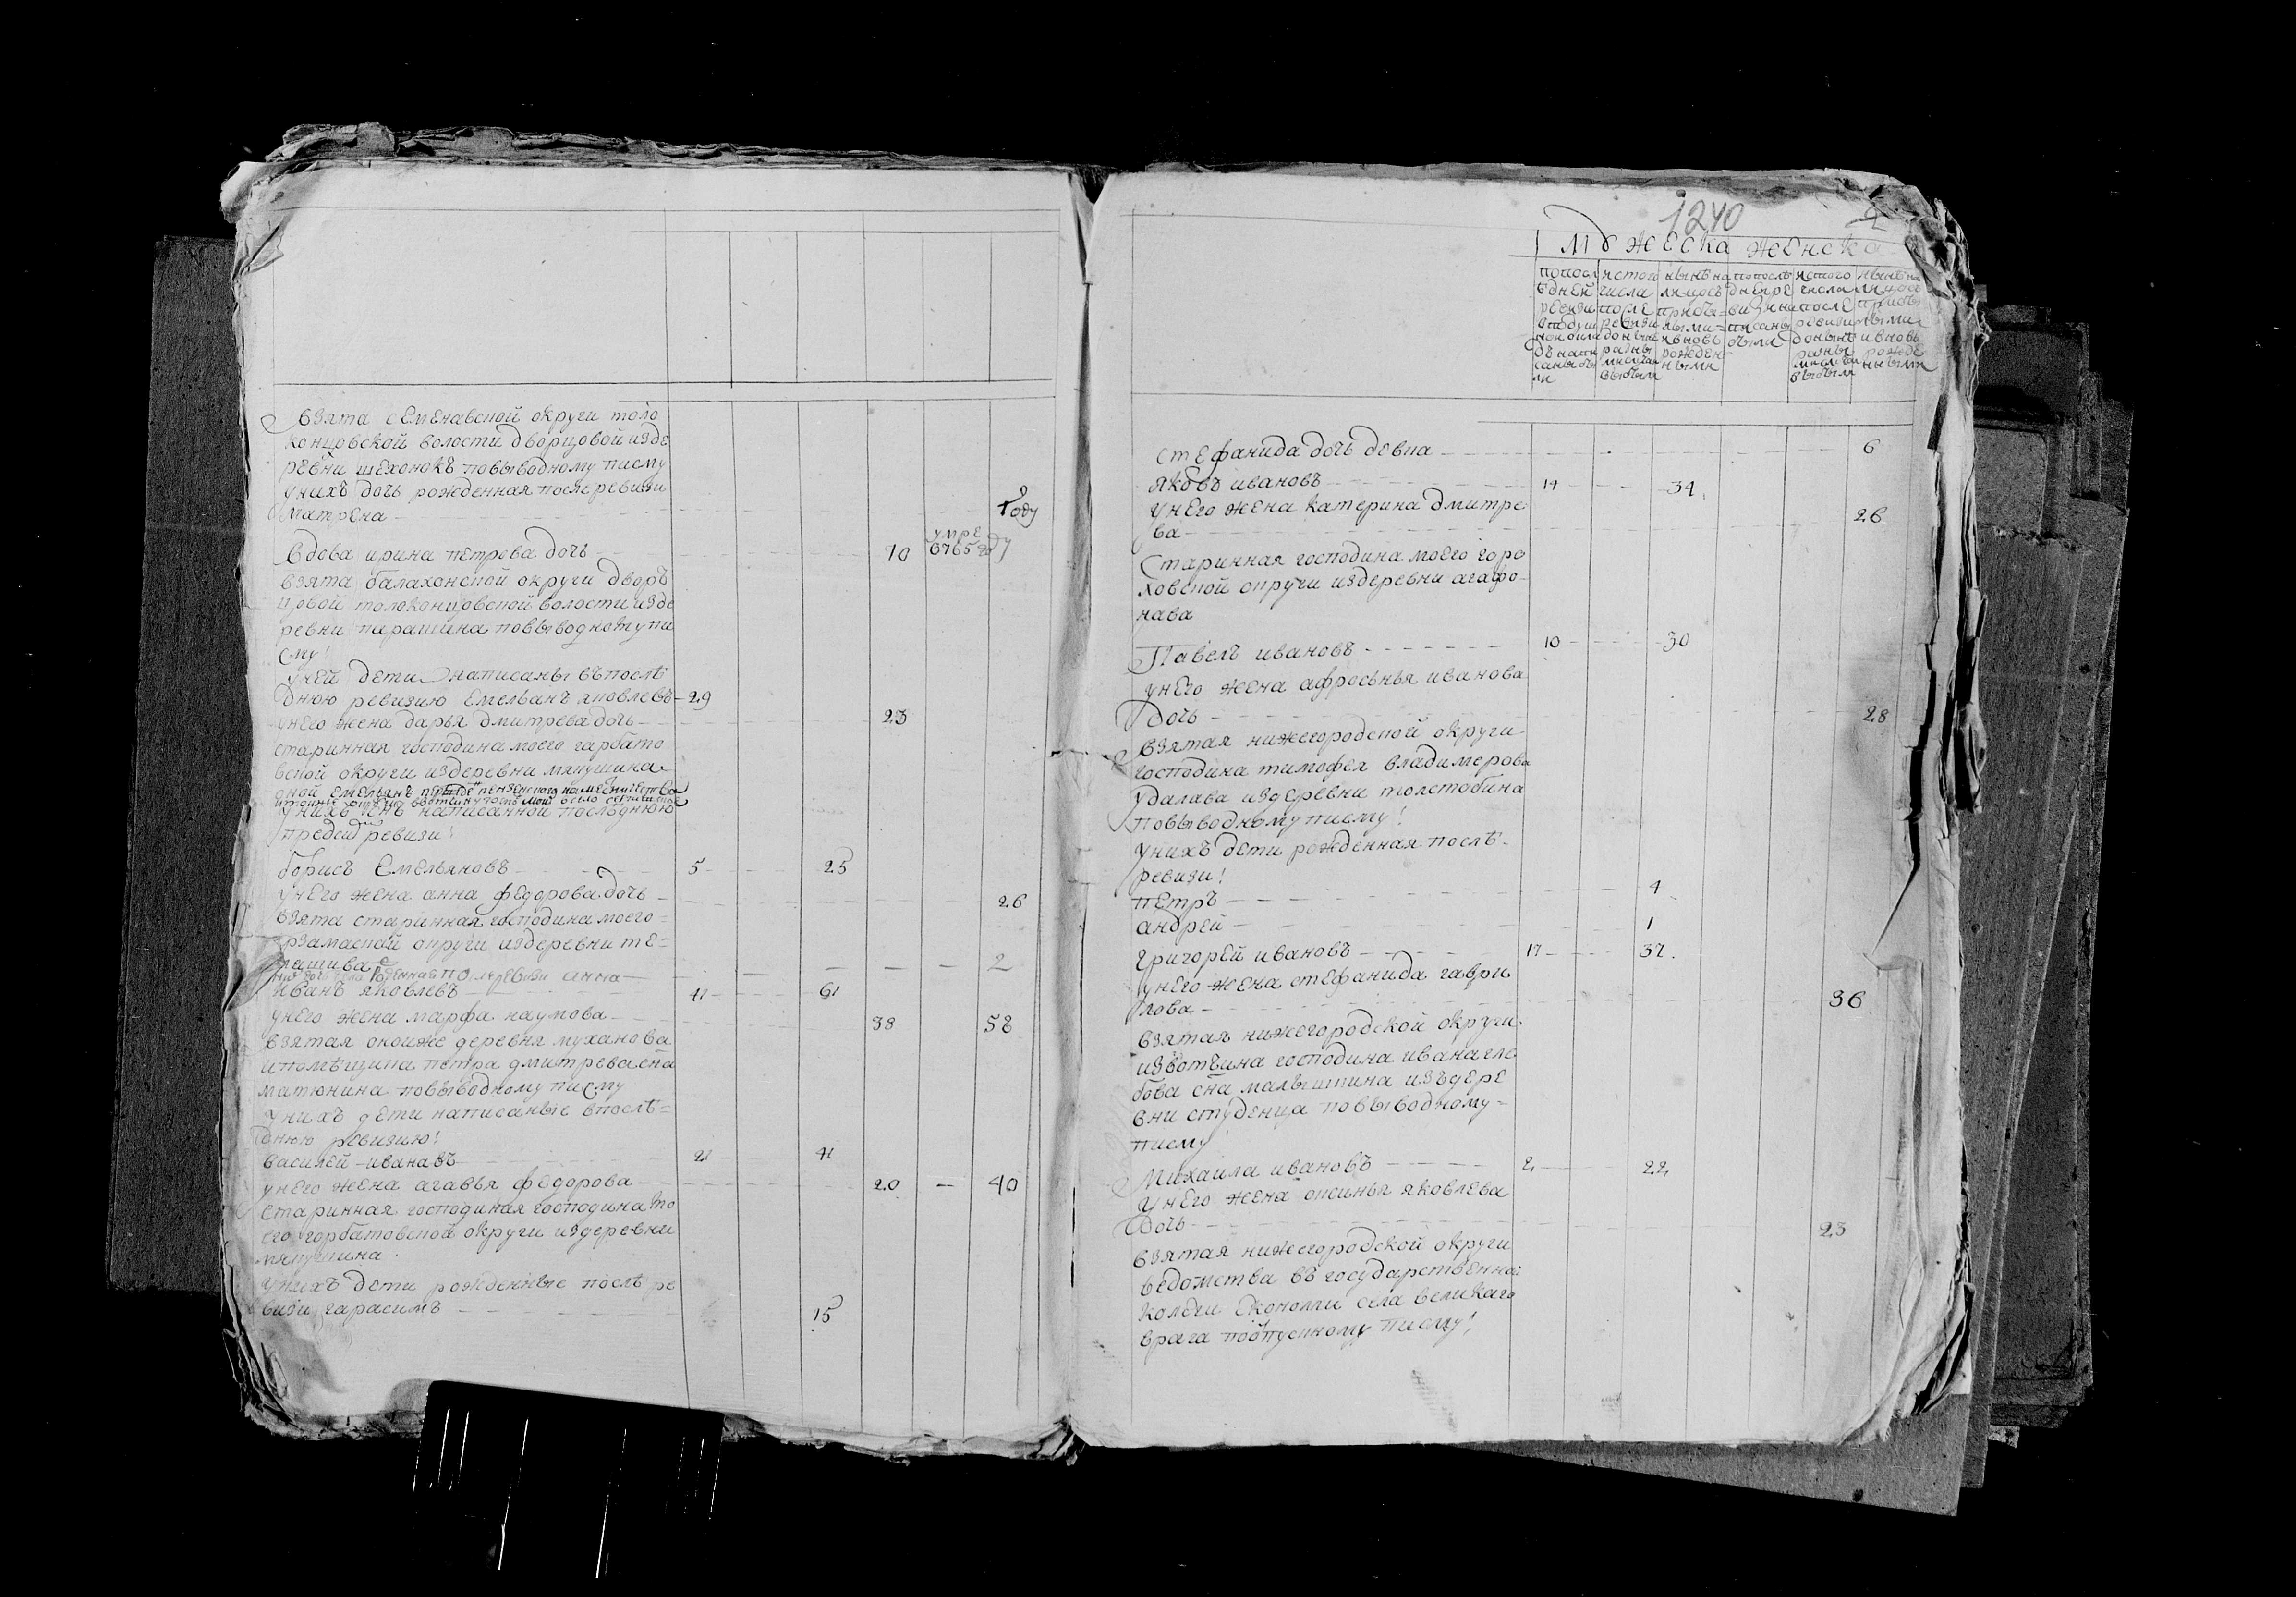 взята семенавской округи толо
концовской волости дворцовой изде
ревни шехонокъ повыводному писму
унихъ дочь рожденная после ревизи
матрена — 1 году
вдова ирина петрова дочь — 70 умре 6765 году
взята балахонской округи дворъ
цовой толоконцовской волости изде
ревни парашина повыводному пи
сму!
уней дети написаны въпослѣ
днюю ревизию емельянъ яковлевъ — 29
унего жена дарья дмитрева дочь — 23
старинная господина моего гарбато
вской округи издеревни мякушина
оной емельянъ пензенского наместничества
унихъ сынъ написанной последнюю
предъ ревизи!
борисъ емельяновъ — 5 — 25
унего жена анна федорова дочь — 26
взята старинная господина моего =
рзамаской округи издеревни те=
пашива
рожденная после ревизи анна — 2
иванъ яковлевъ — 41 — 61
унего жена марфа наумова — 38 — 58
взятая окониже деревня муханова
упомѣщика петра дмитрева сна
матюнина повыводному писму
унихъ дети написаные впослѣ=
днюю ревизию!
василей иванавъ — 21 — 41
унего жена агавья федорова — 20 — 40
старинная господиная господина мо
его горбатовской округи издеревни
мякушина
унихъ дети рожденные послѣ ре
визи гарасимъ — 15
1240
2
мужеска женска
попосле изтого нынѣ на попосле изтого нынѣ на
дней числа лицо дней ре числа лицо
ревизи после прибы= визи после прибы
ревизи лыми= писаны ревизи лыми
доныне ивновь были доныне ивновь
разны рожден разны рожде
ми случаи ными ми случаи нными
выбыли выбыли
стефанида дочь девка — 6
яковъ ивановъ — 14 — 34
унего жена катерина дмитре
ва — 26
старинная господина моего горо
ховской округи издеревни агафо
нава
Павелъ ивановъ — 10 — 30
унего жена афросинья иванова
дочь — 28
взятая нижегородской округи
господина тимофея владимерова
удалава издеревни толстобина
повыводному писму!
унихъ дети рожденная послѣ
ревизи!
петръ — 4
андрей — 1
григорей ивановъ — 17 — 37
унего жена стефанида гаври
лова — 36
взятая нижегородской округи
извотчина господина ивана гле
бова сна малышина изъдере
вни студенца повыводному =
писму
Михаила ивановъ — 2 — 22
унего жена оксинья яковлева
дочь — 23
взятая нижегородской округи
ведомства въ государственной
колеги економи села великаго
врага поопускному писму!